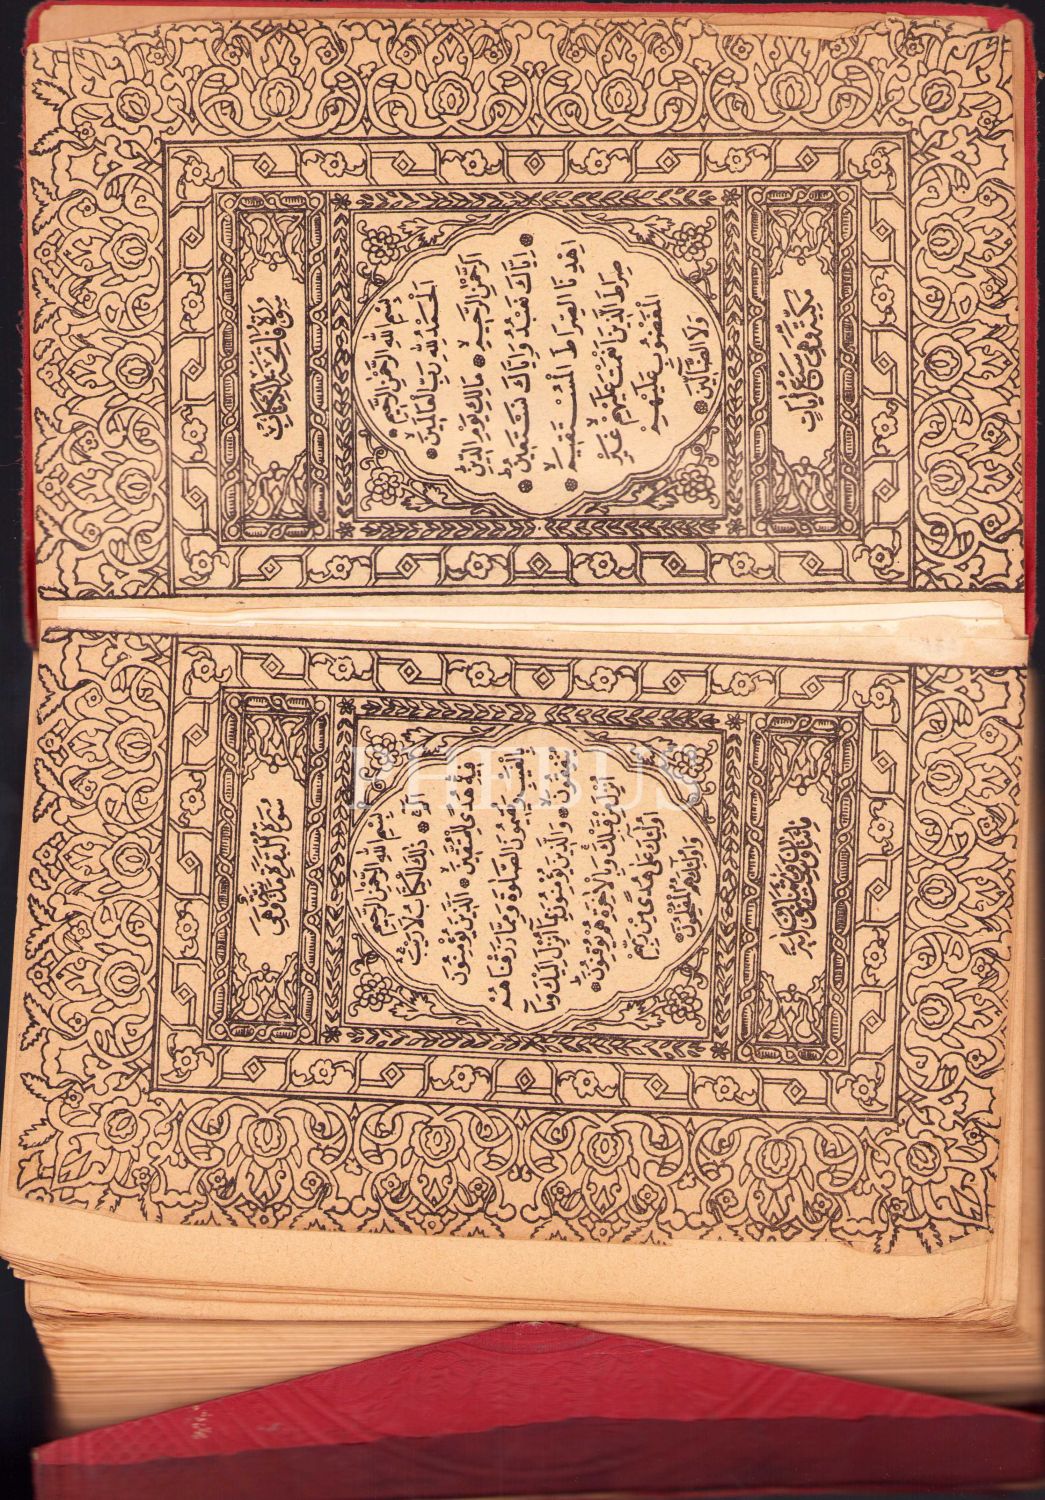 سورة فاتحة الكتاب
بِسْمِ اللهِ الرَّحْمٰنِ الرَّحِيمِ
اَلْحَمْدُ لِلّٰهِ رَبِّ الْعَالَمِينَ
اَلرَّحْمٰنِ الرَّحِيمِ مَالِكِ يَوْمِ الدِّينِ
اِيَّاكَ نَعْبُدُ وَاِيَّاكَ نَسْتَعِينُ
اِهْدِنَا الصِّرَاطَ الْمُسْتَقِيمَ
صِرَاطَ الَّذِينَ اَنْعَمْتَ عَلَيْهِمْ غَيْرِ
الْمَغْضُوبِ عَلَيْهِمْ
وَلَا الضَّالِّينَ
مكية وهي سبع آيات
سورة البقرة مدنية وهي
بِسْمِ اللهِ الرَّحْمٰنِ الرَّحِيمِ
الٓمٓ ذٰلِكَ الْكِتَابُ لَا رَيْبَ
فِيهِ هُدًى لِلْمُتَّقِينَ اَلَّذِينَ يُؤْمِنُونَ
بِالْغَيْبِ وَيُقِيمُونَ الصَّلٰوةَ وَمِمَّا رَزَقْنَاهُمْ
يُنْفِقُونَ وَالَّذِينَ يُؤْمِنُونَ بِمَا اُنْزِلَ اِلَيْكَ وَمَا
اُنْزِلَ مِنْ قَبْلِكَ وَبِالْاٰخِرَةِ هُمْ يُوقِنُونَ
اُولٰٓئِكَ عَلٰى هُدًى مِنْ رَبِّهِمْ
وَاُولٰٓئِكَ هُمُ الْمُفْلِحُونَ
مائتان وست وثمانون آية
PHEBUS